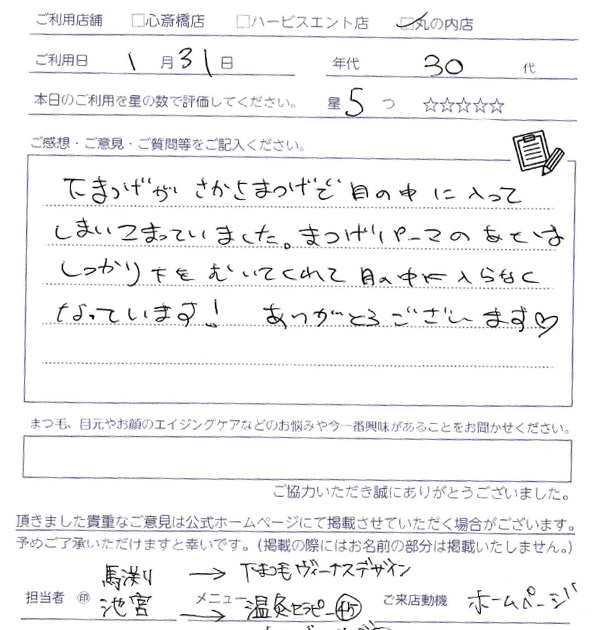 ご利用店舗 □心斎橋店 □ハービスエント店 ☑丸の内店
ご利用日 1月31日 年代 30代
本日のご利用を星の数で評価してください。 星5つ ☆☆☆☆☆
ご感想・ご意見・ご質問等をご記入ください。
下まつげが さかさまつげで 目の中に入って
しまいこまっていました。まつげパーマのあとは
しっかり下をむいてくれて目の中に入らなく
なっています! ありがとうございます♡
まつ毛、目元やお顔のエイジングケアなどのお悩みや今一番興味があることをお聞かせください。
ご協力いただき誠にありがとうございました。
頂きました貴重なご意見は公式ホームページにて掲載させていただく場合がございます。
予めご了承いただけますと幸いです。(掲載の際にはお名前の部分は掲載いたしません。)
馬渕 → 下まつ毛ヴィーナスデザイン
担当者 印 池宮 メニュー → 温灸セラピー 45 ご来店動機 ホームページ